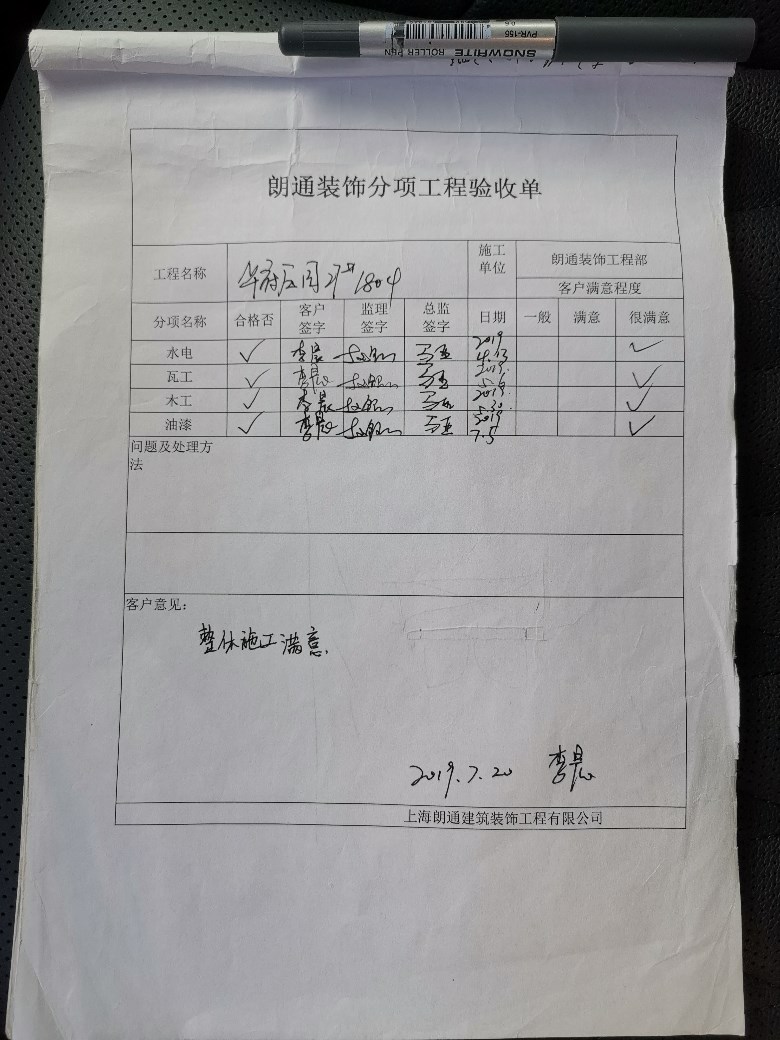 PVR-155
SNOWHITE ROLLER PEN
朗通装饰分项工程验收单
工程名称 1804 施工单位 朗通装饰工程部
客户满意程度
分项名称 合格否 客户签字 监理签字 总监签字 日期 一般 满意 很满意
水电 ✓ 李晨 2019 ✓
瓦工 ✓ 李晨 2019 5.6 ✓
木工 ✓ 李晨 2019 5.30 ✓
油漆 ✓ 李晨 2019 7.5 ✓
问题及处理方法
客户意见：
整体施工满意
2019.7.20 李晨
上海朗通建筑装饰工程有限公司